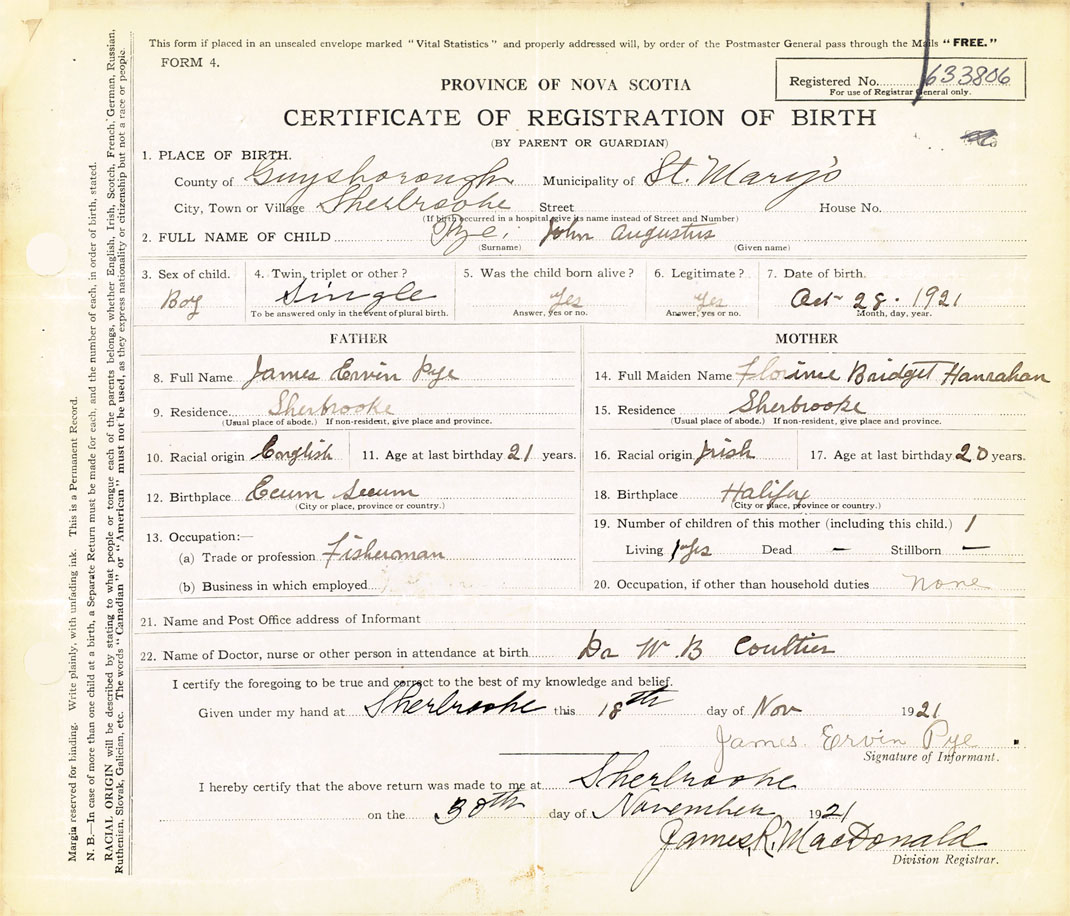 This form if placed in an unsealed envelope marked "Vital Statistics" and properly addressed will, by order of the Postmaster General pass through the Mails "FREE."
FORM 4.
Registered No. 633806
For use of Registrar General only.
PROVINCE OF NOVA SCOTIA
CERTIFICATE OF REGISTRATION OF BIRTH
(BY PARENT OR GUARDIAN)
1. PLACE OF BIRTH.
County of Guysborough Municipality of St. Mary's
City, Town or Village Sherbrooke Street House No.
(If birth occurred in a hospital, give its name instead of Street and Number)
2. FULL NAME OF CHILD Pye, John Augustus
(Surname) (Given name)
3. Sex of child. 4. Twin, triplet or other? 5. Was the child born alive? 6. Legitimate? 7. Date of birth.
Boy Single Yes Yes Oct 28. 1921
To be answered only in the event of plural birth. Answer, yes or no. Answer, yes or no. Month, day, year.
FATHER
8. Full Name James Ervin Pye
9. Residence Sherbrooke
(Usual place of abode.) If non-resident, give place and province.
10. Racial origin English 11. Age at last birthday 21 years.
12. Birthplace Ecum Secum
(City or place, province or country.)
13. Occupation:—
(a) Trade or profession Fisherman
(b) Business in which employed
MOTHER
14. Full Maiden Name Florince Bridget Hanrahan
15. Residence Sherbrooke
(Usual place of abode.) If non-resident, give place and province.
16. Racial origin Irish 17. Age at last birthday 20 years.
18. Birthplace Halifax
(City or place, province or country.)
19. Number of children of this mother (including this child.) 1
Living 1 yes Dead — Stillborn —
20. Occupation, if other than household duties none
21. Name and Post Office address of Informant
22. Name of Doctor, nurse or other person in attendance at birth Dr W. B Coultier
I certify the foregoing to be true and correct to the best of my knowledge and belief.
Given under my hand at Sherbrooke this 18th day of Nov 1921
James. Ervin Pye
Signature of Informant.
I hereby certify that the above return was made to me at Sherbrooke
on the 30th day of November 1921
James R. MacDonald
Division Registrar.
Margin reserved for binding. Write plainly, with unfading ink. This is a Permanent Record.
N. B.—In case of more than one child at a birth, a Separate Return must be made for each, and the number of each, in order of birth, stated.
RACIAL ORIGIN will be described by stating to what people or tongue each of the parents belongs, whether English, Irish, Scotch, French, German, Russian,
Ruthenian, Slovak, Galician, etc. The words "Canadian" or "American" must not be used, as they express nationality or citizenship but not a race or people.